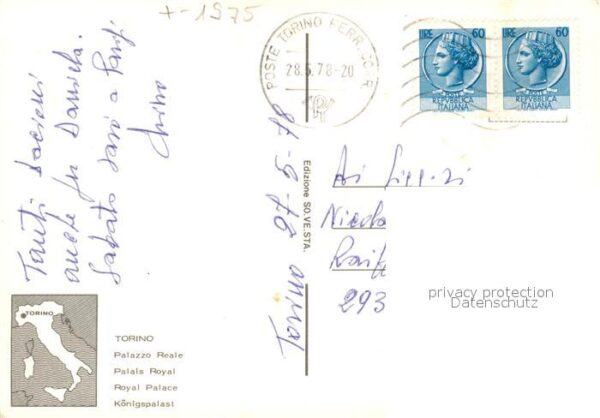 x-1975
Tanti bacioni
anche per Daniela.
Sabato sarò a Parigi
POSTE TORINO FERR. CORR.
28.5.78-20
PT
LIRE 60
POSTE
REPVBBLICA
ITALIANA
LIRE 60
POSTE
REPVBBLICA
ITALIANA
Edizione SO.VE.STA.
Torino 27-5-78
Ai
Nicola
293
privacy protection
Datenschutz
TORINO
TORINO
Palazzo Reale
Palais Royal
Royal Palace
Königspalast